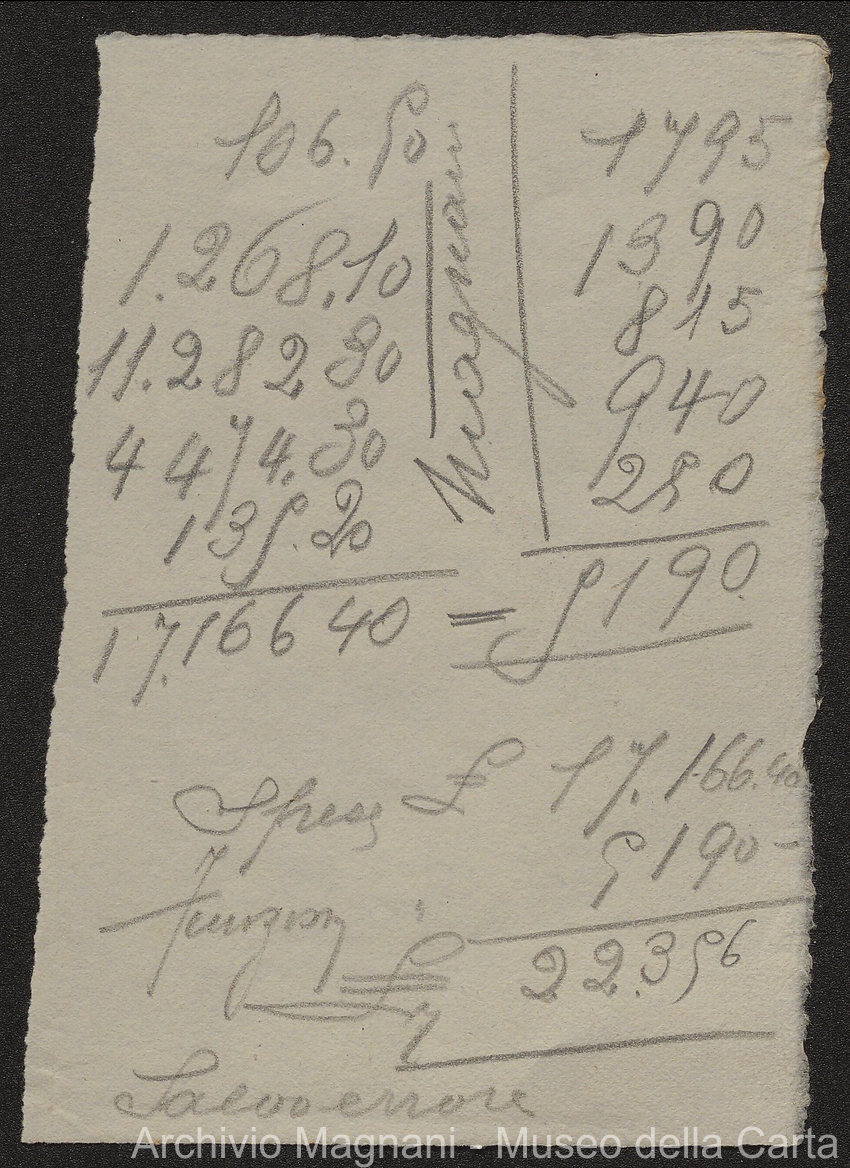 106.50
1.268.10
11.282 30
4474.30
135.20
17.16640 =
Magnani
1795
1390
815
940
250
5190
Spese £ 17.166.40
5190 -
Funzion "
£ 22.356
Salvo errore
Archivio Magnani - Museo della Carta